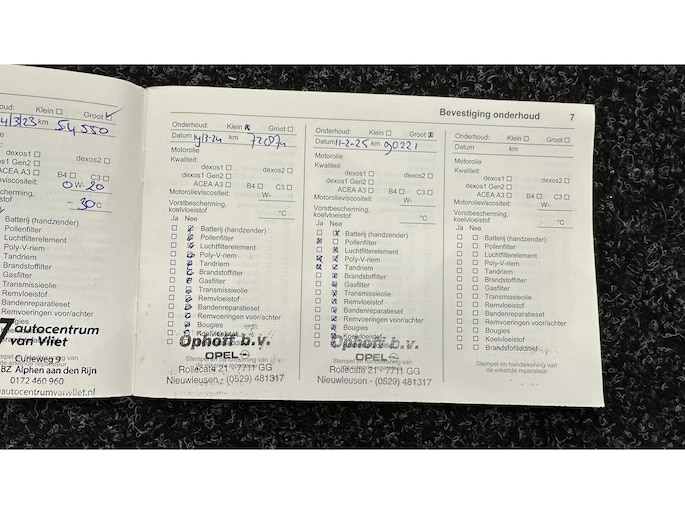 Bevestiging onderhoud 7
Klein ☐ Groot ☑
km 54550
dexos1 ☐
dexos2 ☐
dexos1 Gen2 ☐
ACEA A3 ☐ B4 ☐ C3 ☐
0 W- 20
- 30 °C
Batterij (handzender)
Pollenfilter
Luchtfilterelement
Poly-V-riem
Tandriem
Brandstoffilter
Gasfilter
Transmissieolie
Remvloeistof
Bandenreparatieset
Remvoeringen voor/achter
Bougies
autocentrum
van Vliet
Curieweg 9
BZ Alphen aan den Rijn
0172 460 960
autocentrumvanvliet.nl
Onderhoud: Klein ☒ Groot ☐
Datum km
Motorolie
Kwaliteit:
dexos1 ☐
dexos2 ☐
dexos1 Gen2 ☐
ACEA A3 ☐ B4 ☐ C3 ☐
Motorolieviscositeit: W-
Vorstbescherming,
koelvloeistof °C
Ja Nee
Batterij (handzender)
Pollenfilter
Luchtfilterelement
Poly-V-riem
Tandriem
Brandstoffilter
Gasfilter
Transmissieolie
Remvloeistof
Bandenreparatieset
Remvoeringen voor/achter
Bougies
Koelvloeistof
Ophoff b.v.
OPEL
Rollecate 21 - 7711 GG
Nieuwleusen - (0529) 481317
Onderhoud: Klein ☐ Groot ☒
Datum 11-2-25 km 90221
Motorolie
Kwaliteit:
dexos1 ☐
dexos2 ☐
dexos1 Gen2 ☐
ACEA A3 ☐ B4 ☐ C3 ☐
Motorolieviscositeit: W-
Vorstbescherming,
koelvloeistof °C
Ja Nee
Batterij (handzender)
Pollenfilter
Luchtfilterelement
Poly-V-riem
Tandriem
Brandstoffilter
Gasfilter
Transmissieolie
Remvloeistof
Bandenreparatieset
Remvoeringen voor/achter
Bougies
Koelvloeistof
Ophoff b.v.
OPEL
Stempel en handtekening van
Rollecate 21 - 7711 GG
Nieuwleusen - (0529) 481317
Onderhoud: Klein ☐ Groot ☐
Datum km
Motorolie
Kwaliteit:
dexos1 ☐
dexos2 ☐
dexos1 Gen2 ☐
ACEA A3 ☐ B4 ☐ C3 ☐
Motorolieviscositeit: W-
Vorstbescherming,
koelvloeistof °C
Ja Nee
Batterij (handzender)
Pollenfilter
Luchtfilterelement
Poly-V-riem
Tandriem
Brandstoffilter
Gasfilter
Transmissieolie
Remvloeistof
Bandenreparatieset
Remvoeringen voor/achter
Bougies
Koelvloeistof
Brandstofadditief
Stempel en handtekening van
de erkende reparateur